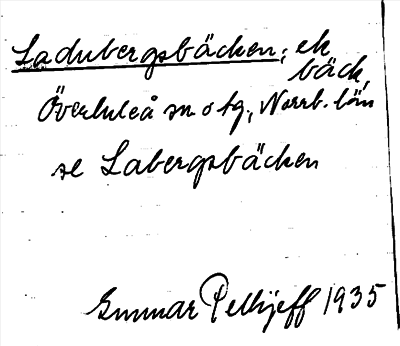 Ladubergsbäcken, ek
bäck,
Överluleå sn o tg, Norrb. län
se Labergsbäcken
Gunnar Pellijeff 1935